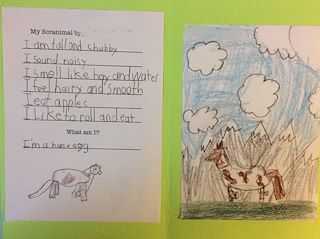 My Scranimal by..
I am tall and chubby
I sound noisy
I smell like hay and water
I feel hairy and smooth
I eat apples
I Like to roll and eat
What am I?
I'm a